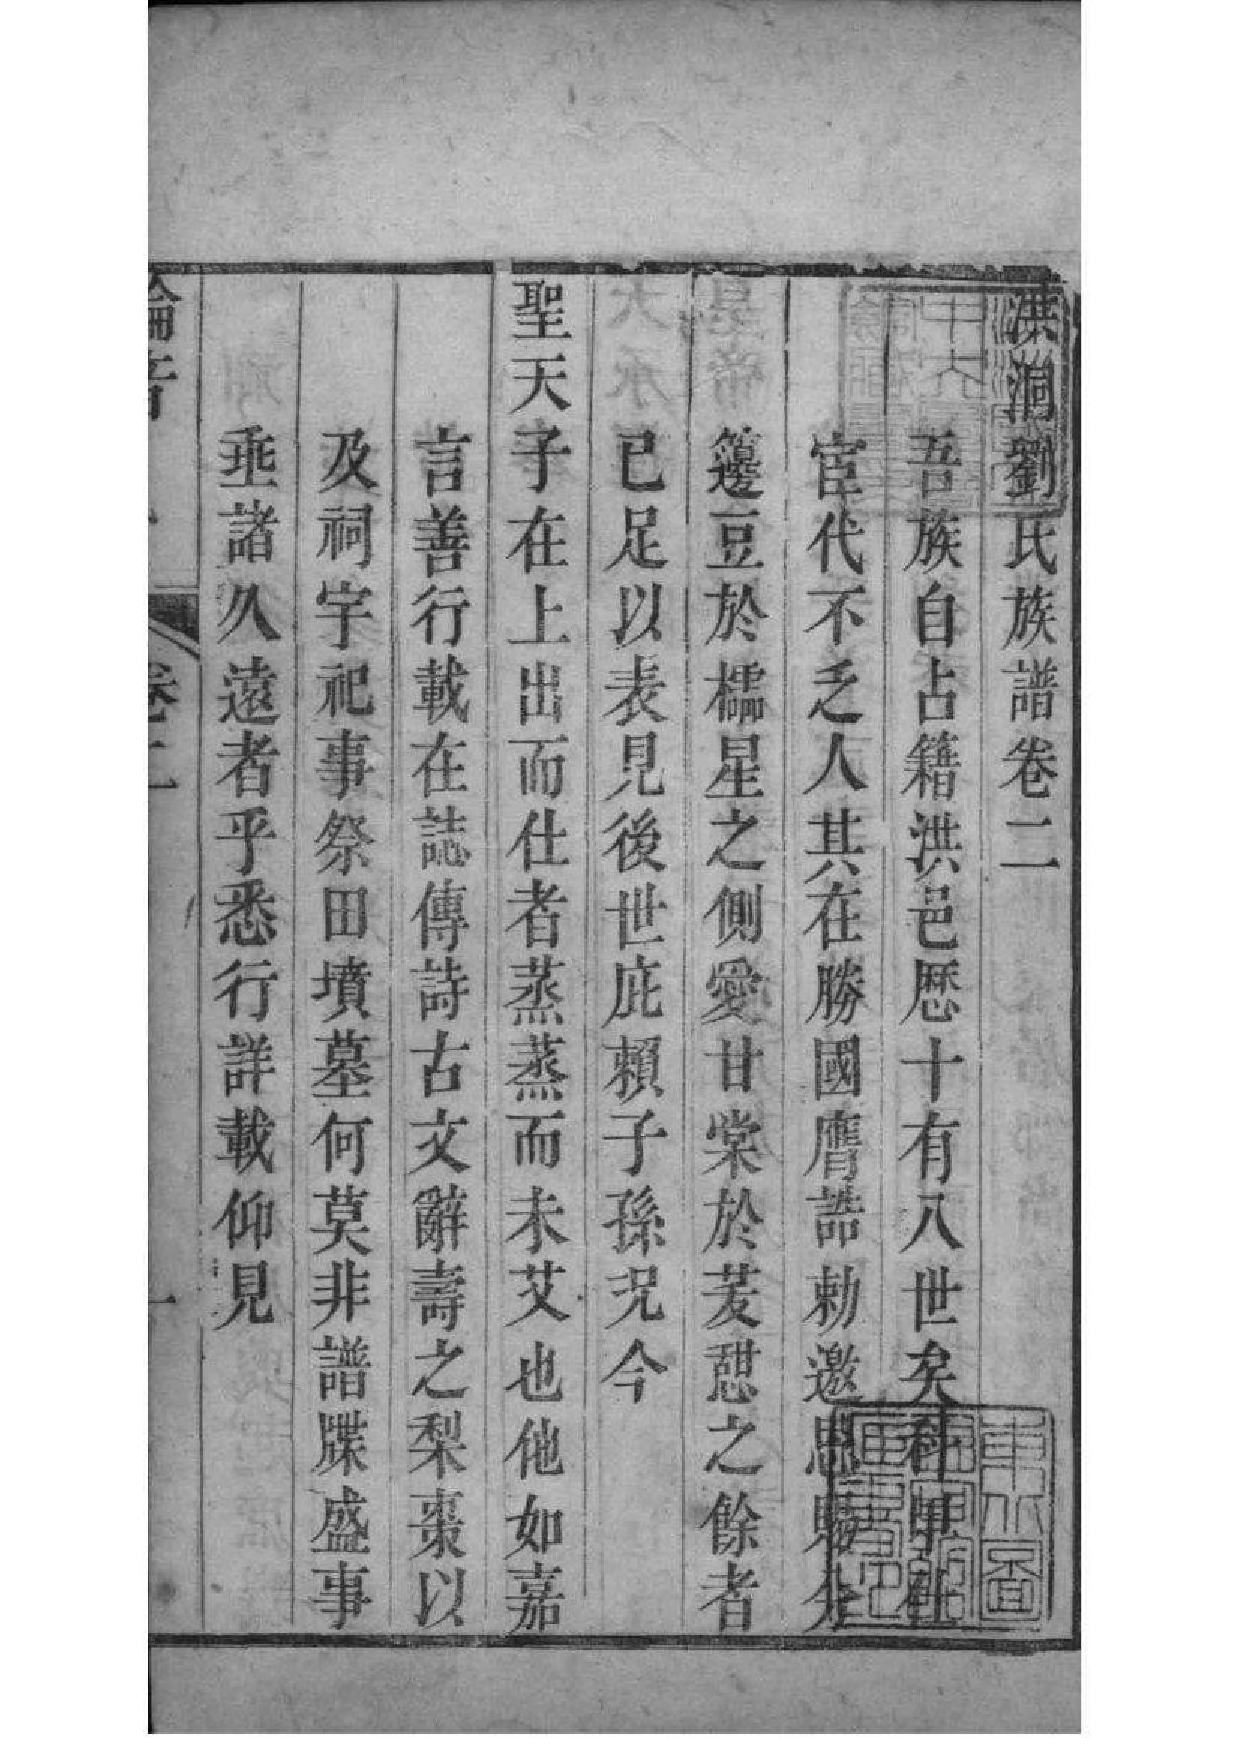 洪洞劉氏族譜卷二
吾族自占籍洪邑歷十有八世矣科甲仕
宦代不乏人其在勝國膺誥勅邀恩賜分
籩豆於櫺星之側愛甘棠於茇憇之餘者
已足以表見後世庇賴子孫況今
聖天子在上出而仕者蒸蒸而未艾也他如嘉
言善行載在誌傳詩古文辭壽之梨棗以
及祠宇祀事祭田墳墓何莫非譜牒盛事
垂諸久遠者乎悉行詳載仰見
綸音
卷二
一